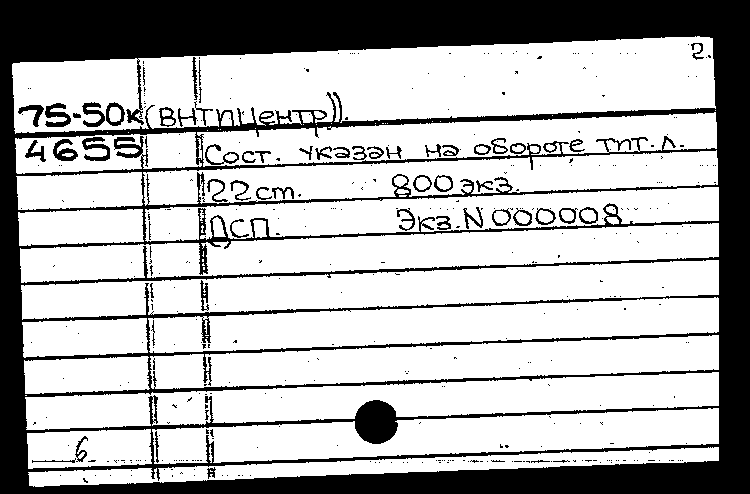 2.
75-50к (ВНТПЦентр)).
4655 Сост. указан на обороте тит. л.
22 ст. 800 экз.
ДСП. Экз. N 000008.
6